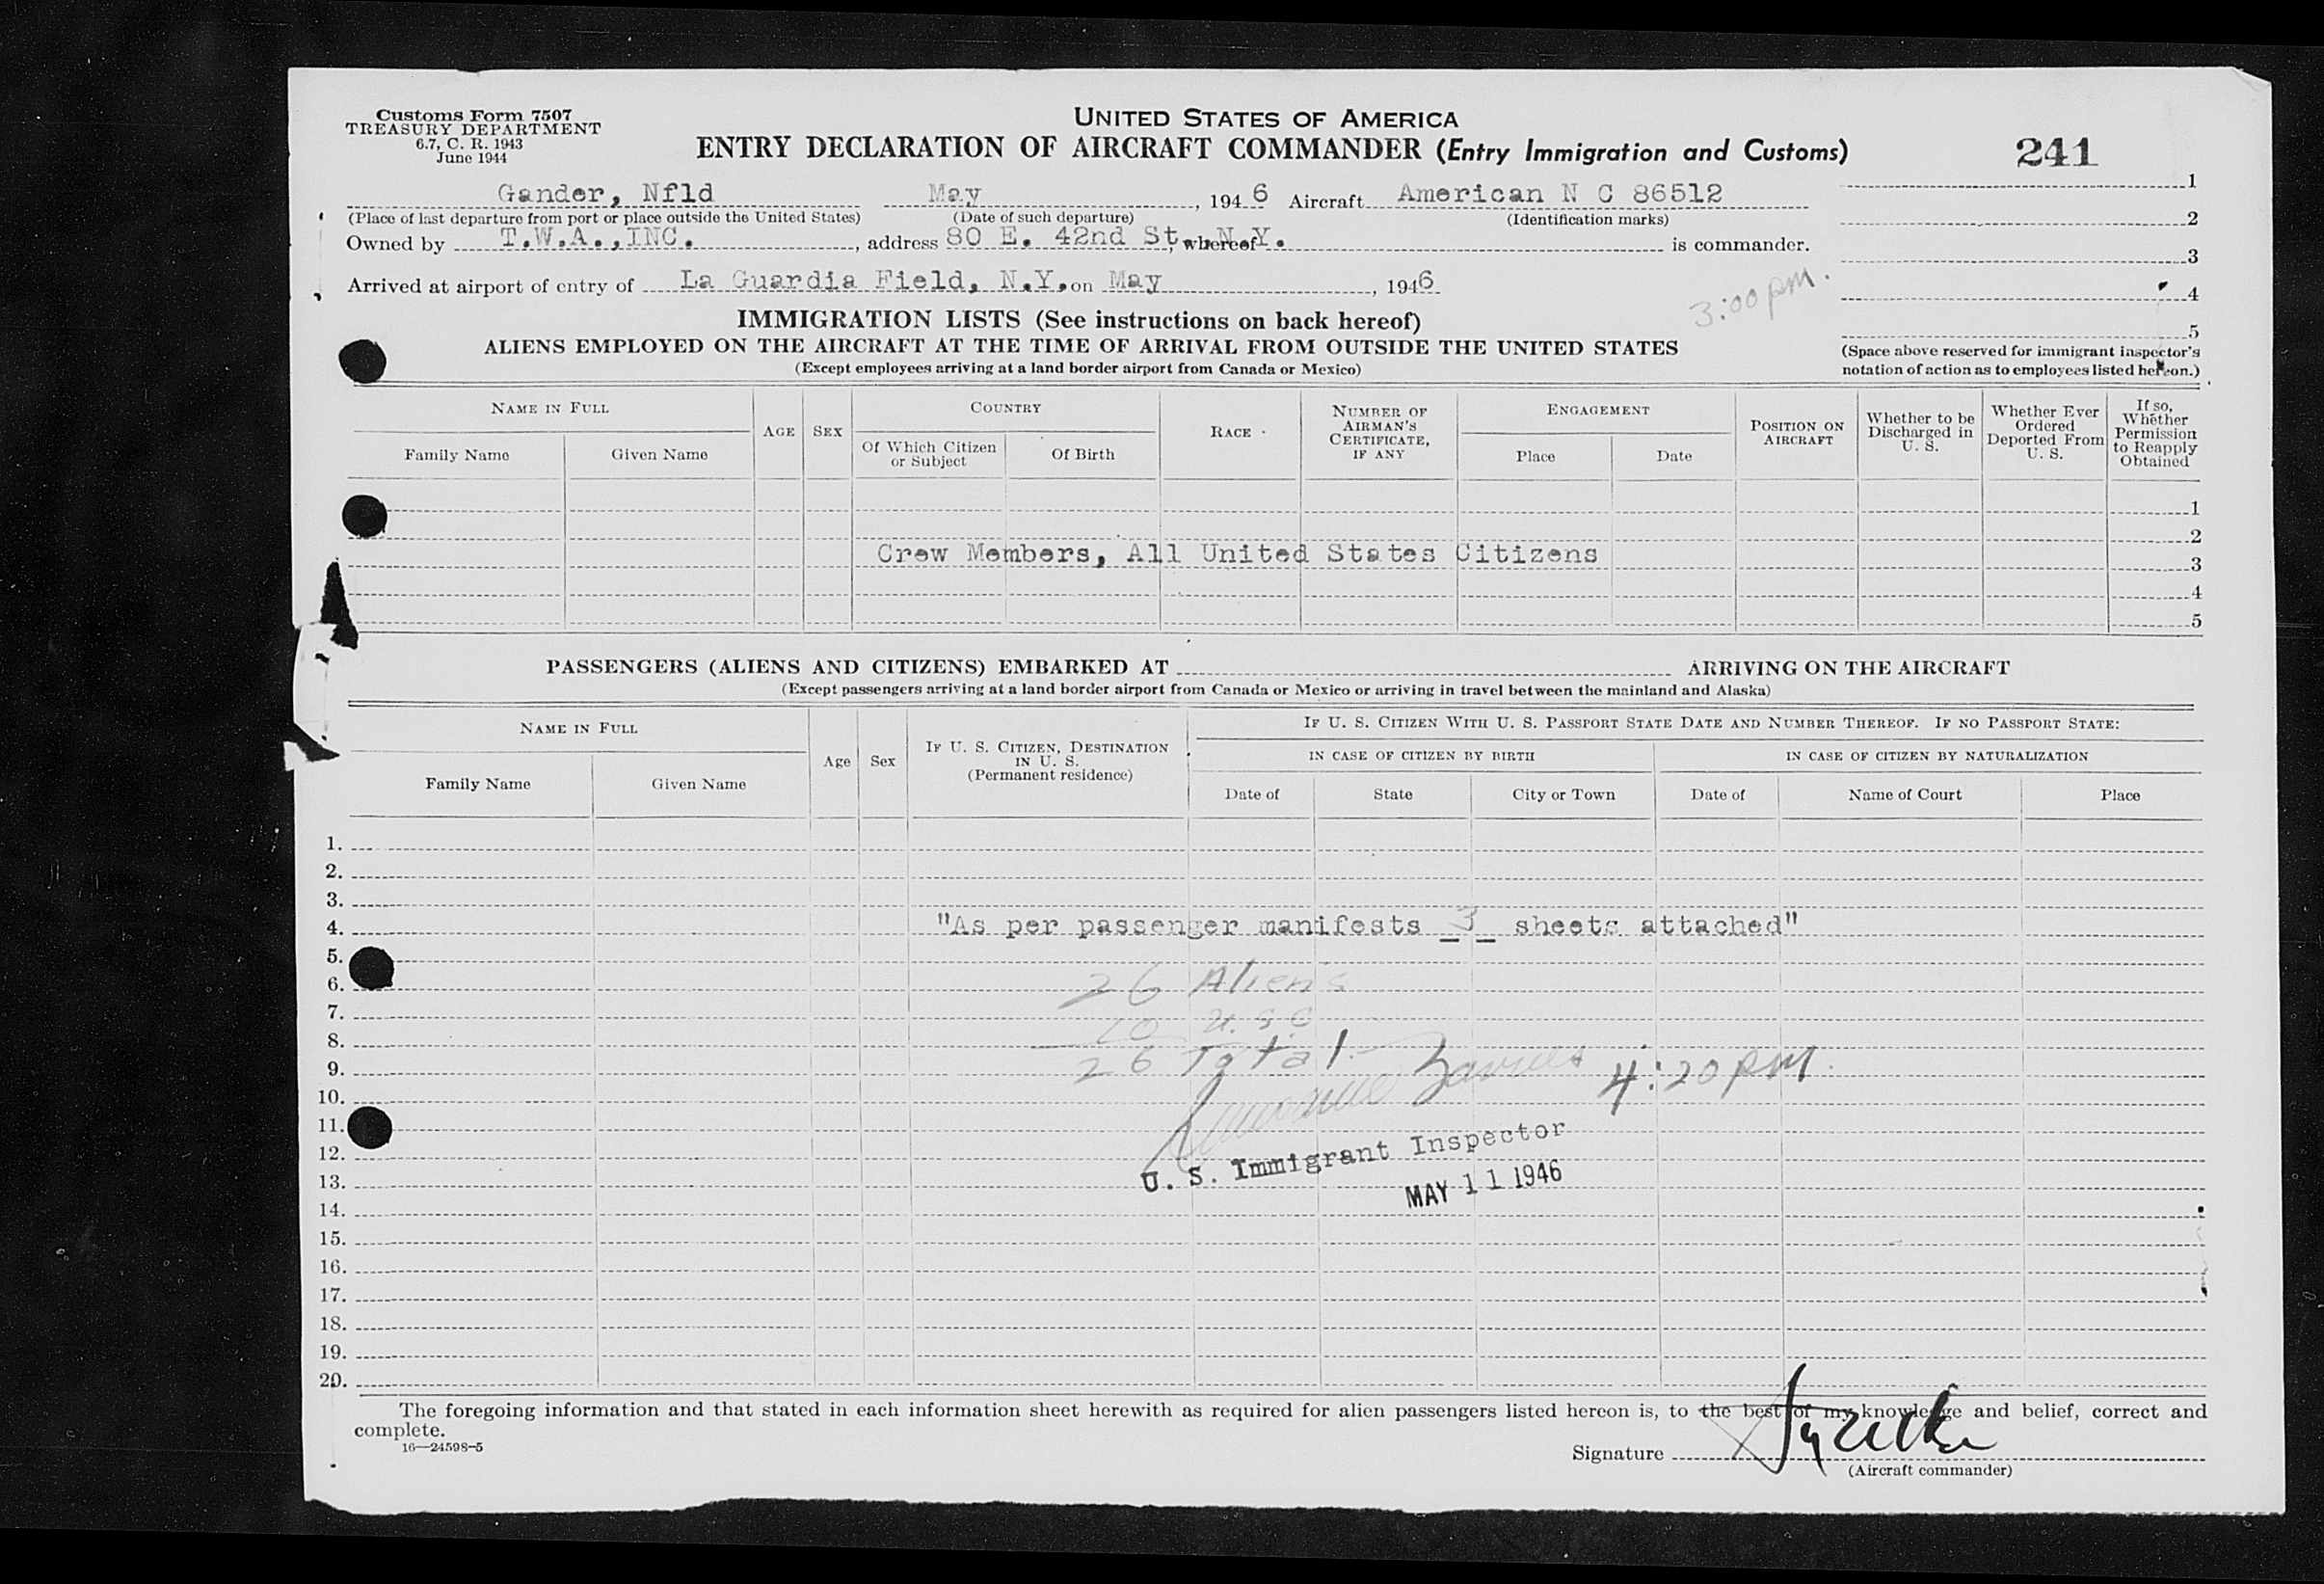 Customs Form 7507
TREASURY DEPARTMENT
6.7, C. R. 1943
June 1944
UNITED STATES OF AMERICA
ENTRY DECLARATION OF AIRCRAFT COMMANDER (Entry Immigration and Customs)
241
Gander, Nfld May , 1946 Aircraft American N C 86512
(Place of last departure from port or place outside the United States) (Date of such departure) (Identification marks)
Owned by T.W.A.,INC. , address 80 E. 42nd St., N.Y. , whereof is commander.
Arrived at airport of entry of La Guardia Field, N.Y. on May , 1946
3:00 pm.
1
2
3
4
5
(Space above reserved for immigrant inspector's
notation of action as to employees listed hereon.)
IMMIGRATION LISTS (See instructions on back hereof)
ALIENS EMPLOYED ON THE AIRCRAFT AT THE TIME OF ARRIVAL FROM OUTSIDE THE UNITED STATES
(Except employees arriving at a land border airport from Canada or Mexico)
NAME IN FULL
Family Name
Given Name
AGE
SEX
COUNTRY
Of Which Citizen
or Subject
Of Birth
RACE
NUMBER OF
AIRMAN'S
CERTIFICATE,
IF ANY
ENGAGEMENT
Place
Date
POSITION ON
AIRCRAFT
Whether to be
Discharged in
U. S.
Whether Ever
Ordered
Deported From
U. S.
If so,
Whether
Permission
to Reapply
Obtained
1
2
Crew Members, All United States Citizens
3
4
5
PASSENGERS (ALIENS AND CITIZENS) EMBARKED AT ARRIVING ON THE AIRCRAFT
(Except passengers arriving at a land border airport from Canada or Mexico or arriving in travel between the mainland and Alaska)
NAME IN FULL
Family Name
Given Name
Age
Sex
IF U. S. CITIZEN, DESTINATION
IN U. S.
(Permanent residence)
IF U. S. CITIZEN WITH U. S. PASSPORT STATE DATE AND NUMBER THEREOF. IF NO PASSPORT STATE:
IN CASE OF CITIZEN BY BIRTH
IN CASE OF CITIZEN BY NATURALIZATION
Date of
State
City or Town
Date of
Name of Court
Place
1.
2.
3.
4. "As per passenger manifests _3_ sheets attached"
5.
6. 26 Aliens
7. U.S.C
8.
9. 26 Total 4:20 pm.
10.
11.
12. U. S. Immigrant Inspector
13. MAY 11 1946
14.
15.
16.
17.
18.
19.
20.
The foregoing information and that stated in each information sheet herewith as required for alien passengers listed hereon is, to the best of my knowledge and belief, correct and
complete.
16—24598-5
Signature
(Aircraft commander)